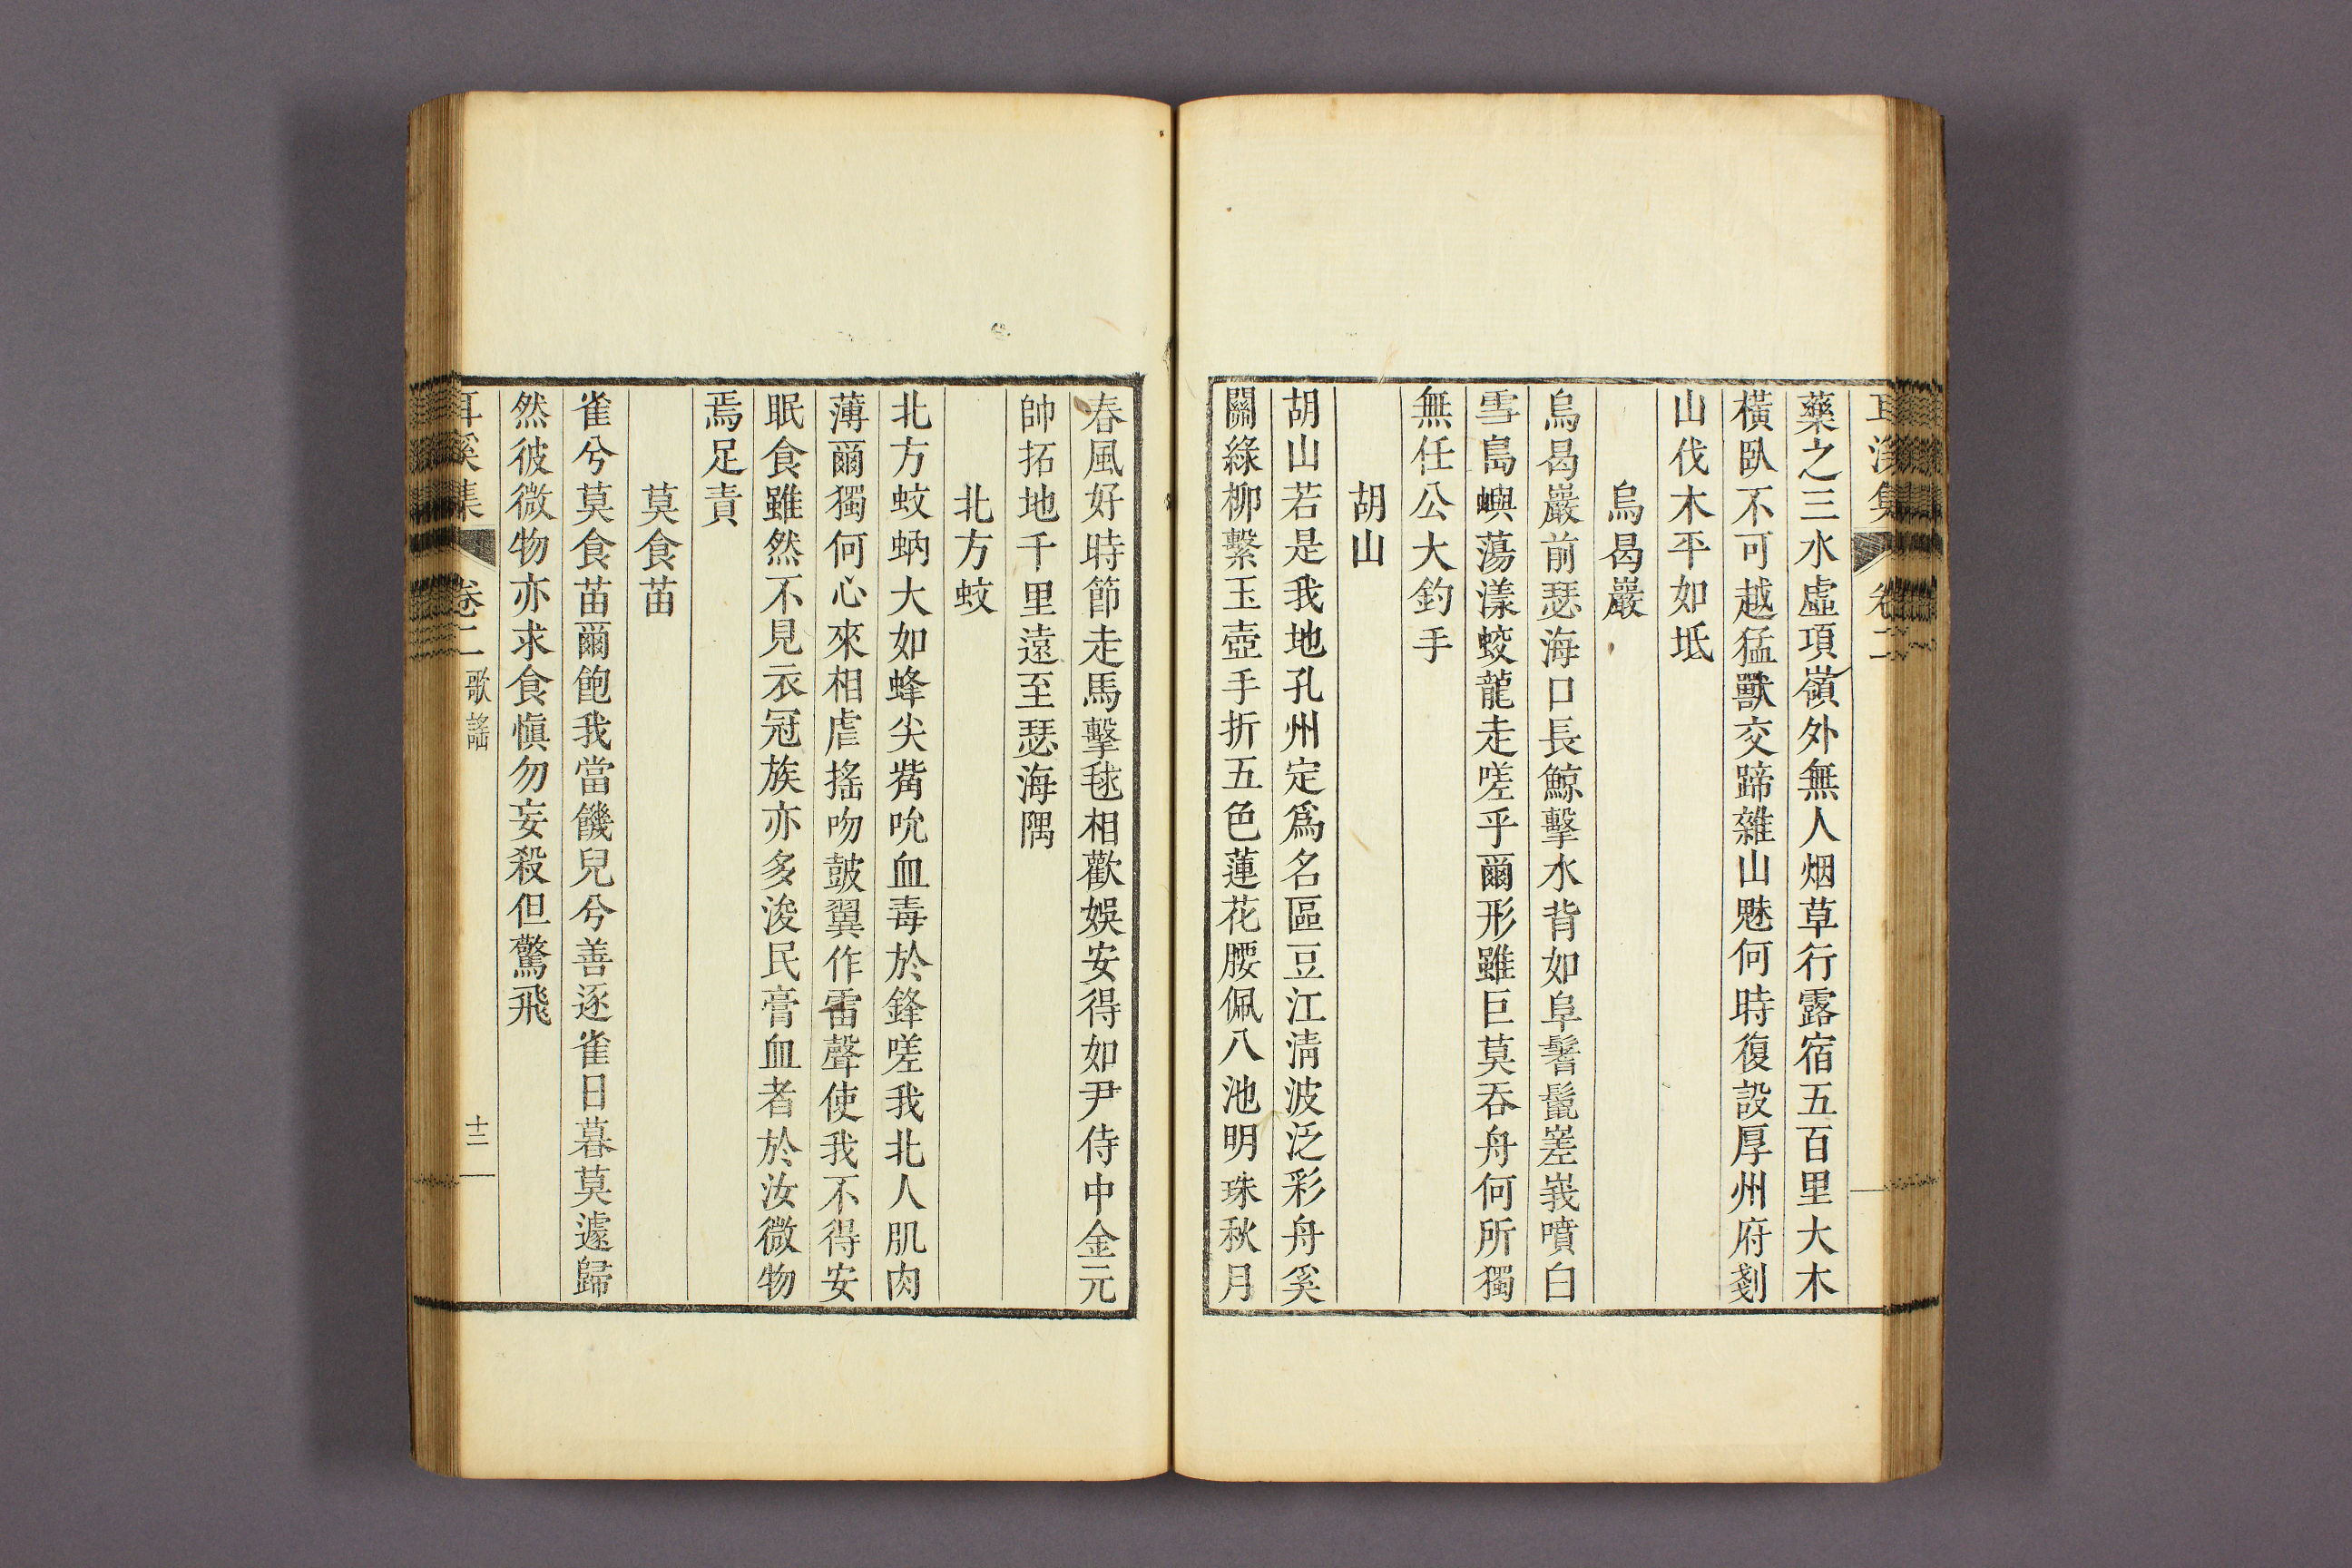 耳溪集 卷二
蘂之三水虛項嶺外無人烟草行露宿五百里大木
橫臥不可越猛獸交蹄雜山魅何時復設厚州府剗
山伐木平如坻
烏曷巖
烏曷巖前瑟海口長鯨擊水背如阜鬐鬣嵳峩噴白
雪島嶼蕩漾蛟龍走嗟乎爾形雖巨莫吞舟何所獨
無任公大釣手
胡山
胡山若是我地孔州定爲名區豆江淸波泛彩舟奚
關綠柳繫玉壺手折五色蓮花腰佩八池明珠秋月
春風好時節走馬擊毬相歡娛安得如尹侍中金元
帥拓地千里遠至瑟海隅
北方蚊
北方蚊蚋大如蜂尖觜吮血毒於鋒嗟我北人肌肉
薄爾獨何心來相虐搖吻皷翼作雷聲使我不得安
眠食雖然不見衣冠族亦多浚民膏血者於汝微物
焉足責
莫食苗
雀兮莫食苗爾飽我當饑兒兮善逐雀日暮莫遽歸
然彼微物亦求食愼勿妄殺但驚飛
耳溪集 卷二 歌謠 十二